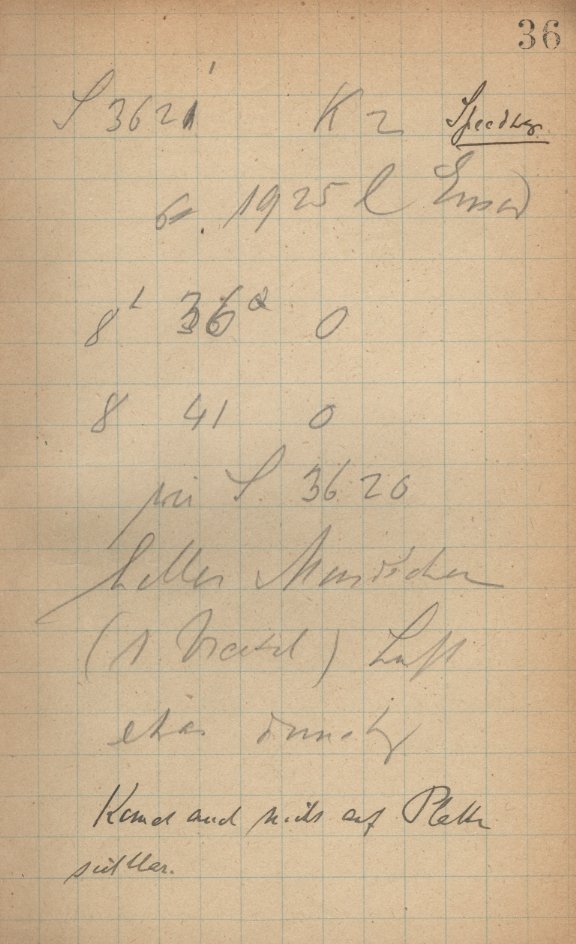 36
S 3621 K 2 Speedway
1925 l Ensor
8ʰ 36ᵐ 0
8 41 0
wie S. 3620
heller Mondschein
(1 Viertel) Luft
etwas dunstig
Komet auch nicht auf Platte
sichtbar.